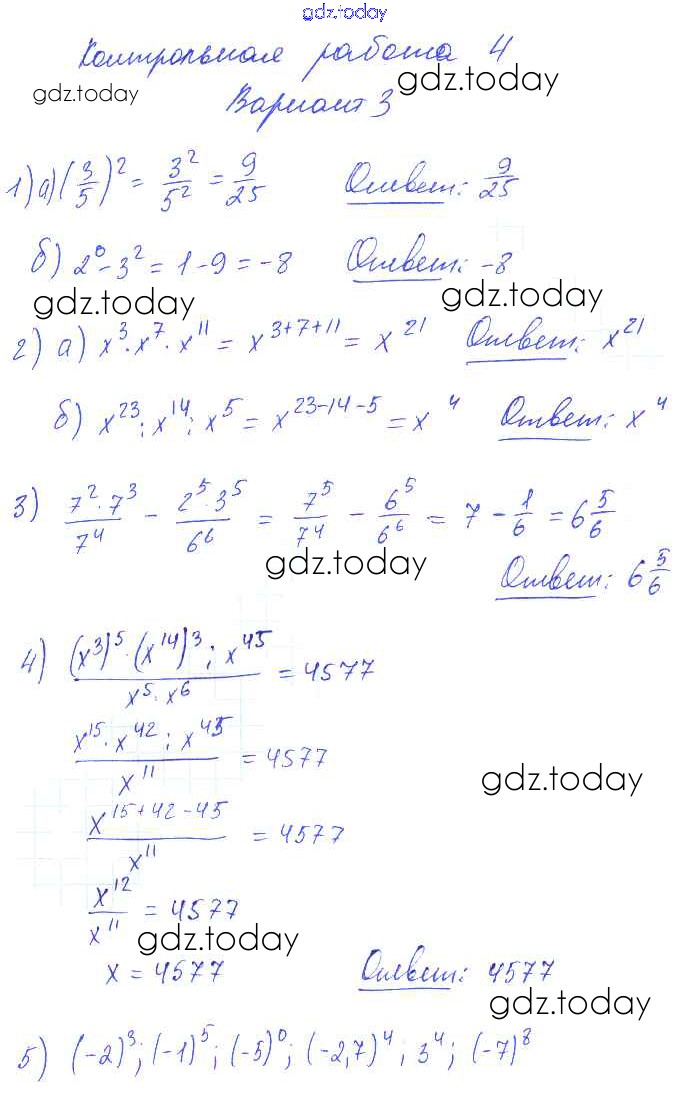 gdz.today
Контрольная работа 4
gdz.today gdz.today
Вариант 3
1) а) (3/5)² = 3²/5² = 9/25 Ответ: 9/25
б) 2⁰ - 3² = 1 - 9 = -8 Ответ: -8
gdz.today gdz.today
2) а) x³ · x⁷ · x¹¹ = x³⁺⁷⁺¹¹ = x²¹ Ответ: x²¹
б) x²³ : x¹⁴ : x⁵ = x²³⁻¹⁴⁻⁵ = x⁴ Ответ: x⁴
3) 7² · 7³/7⁴ - 2⁵ · 3⁵/6⁶ = 7⁵/7⁴ - 6⁵/6⁶ = 7 - 1/6 = 6 5/6
gdz.today
Ответ: 6 5/6
4) (x³)⁵ · (x¹⁴)³ : x⁴⁵/x⁵ · x⁶ = 4577
x¹⁵ · x⁴² : x⁴⁵/x¹¹ = 4577
gdz.today
x¹⁵⁺⁴²⁻⁴⁵/x¹¹ = 4577
x¹²/x¹¹ = 4577
gdz.today
x = 4577 Ответ: 4577
gdz.today
5) (-2)³; (-1)⁵; (-5)⁰; (-2,7)⁴; 3⁴; (-7)⁸